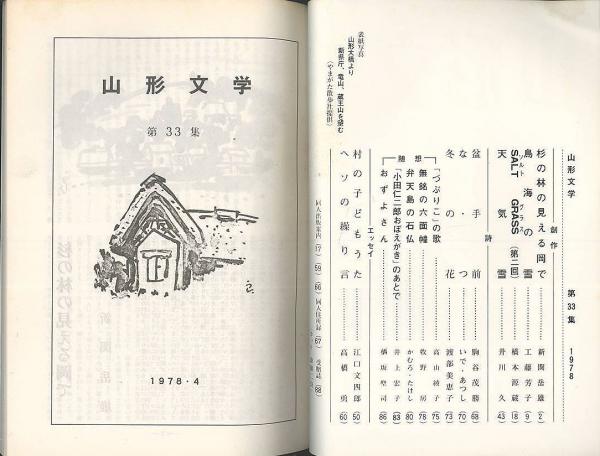 山形文学
第33集
1978・4
山形文学 第33集 1978
創作
杉の林の見える岡で 新関岳雄 (2)
鳥海の雪 工藤芳子 (9)
SALT GRASS (第二回) 橋本源蔵 (18)
ソルト グラス
天気雪 丹川久 (43)
詩
盆手前 駒谷茂勝 (68)
な・つ いで・あつし (70)
冬の花 渡部美恵子 (73)
随想
「づぶりこ」の歌 高山綾子 (75)
無銘の六面幢 牧野房 (78)
弁天島の石仏 かむろ・たけし (80)
「小田仁二郎おぼえがき」のあとで 井上宏子 (83)
おずよさん 槙坂堅司 (86)
エッセイ
村の子どもうた 江口文四郎 (50)
ヘソの繰り言 高橋勇 (60)
同人出版案内 (17) (59) (66) 同人住所録 (67) 受贈誌 (68)
表紙写真
山形大橋より
新県庁、竜山、蔵王山を望む
(やまがた散歩社提供)